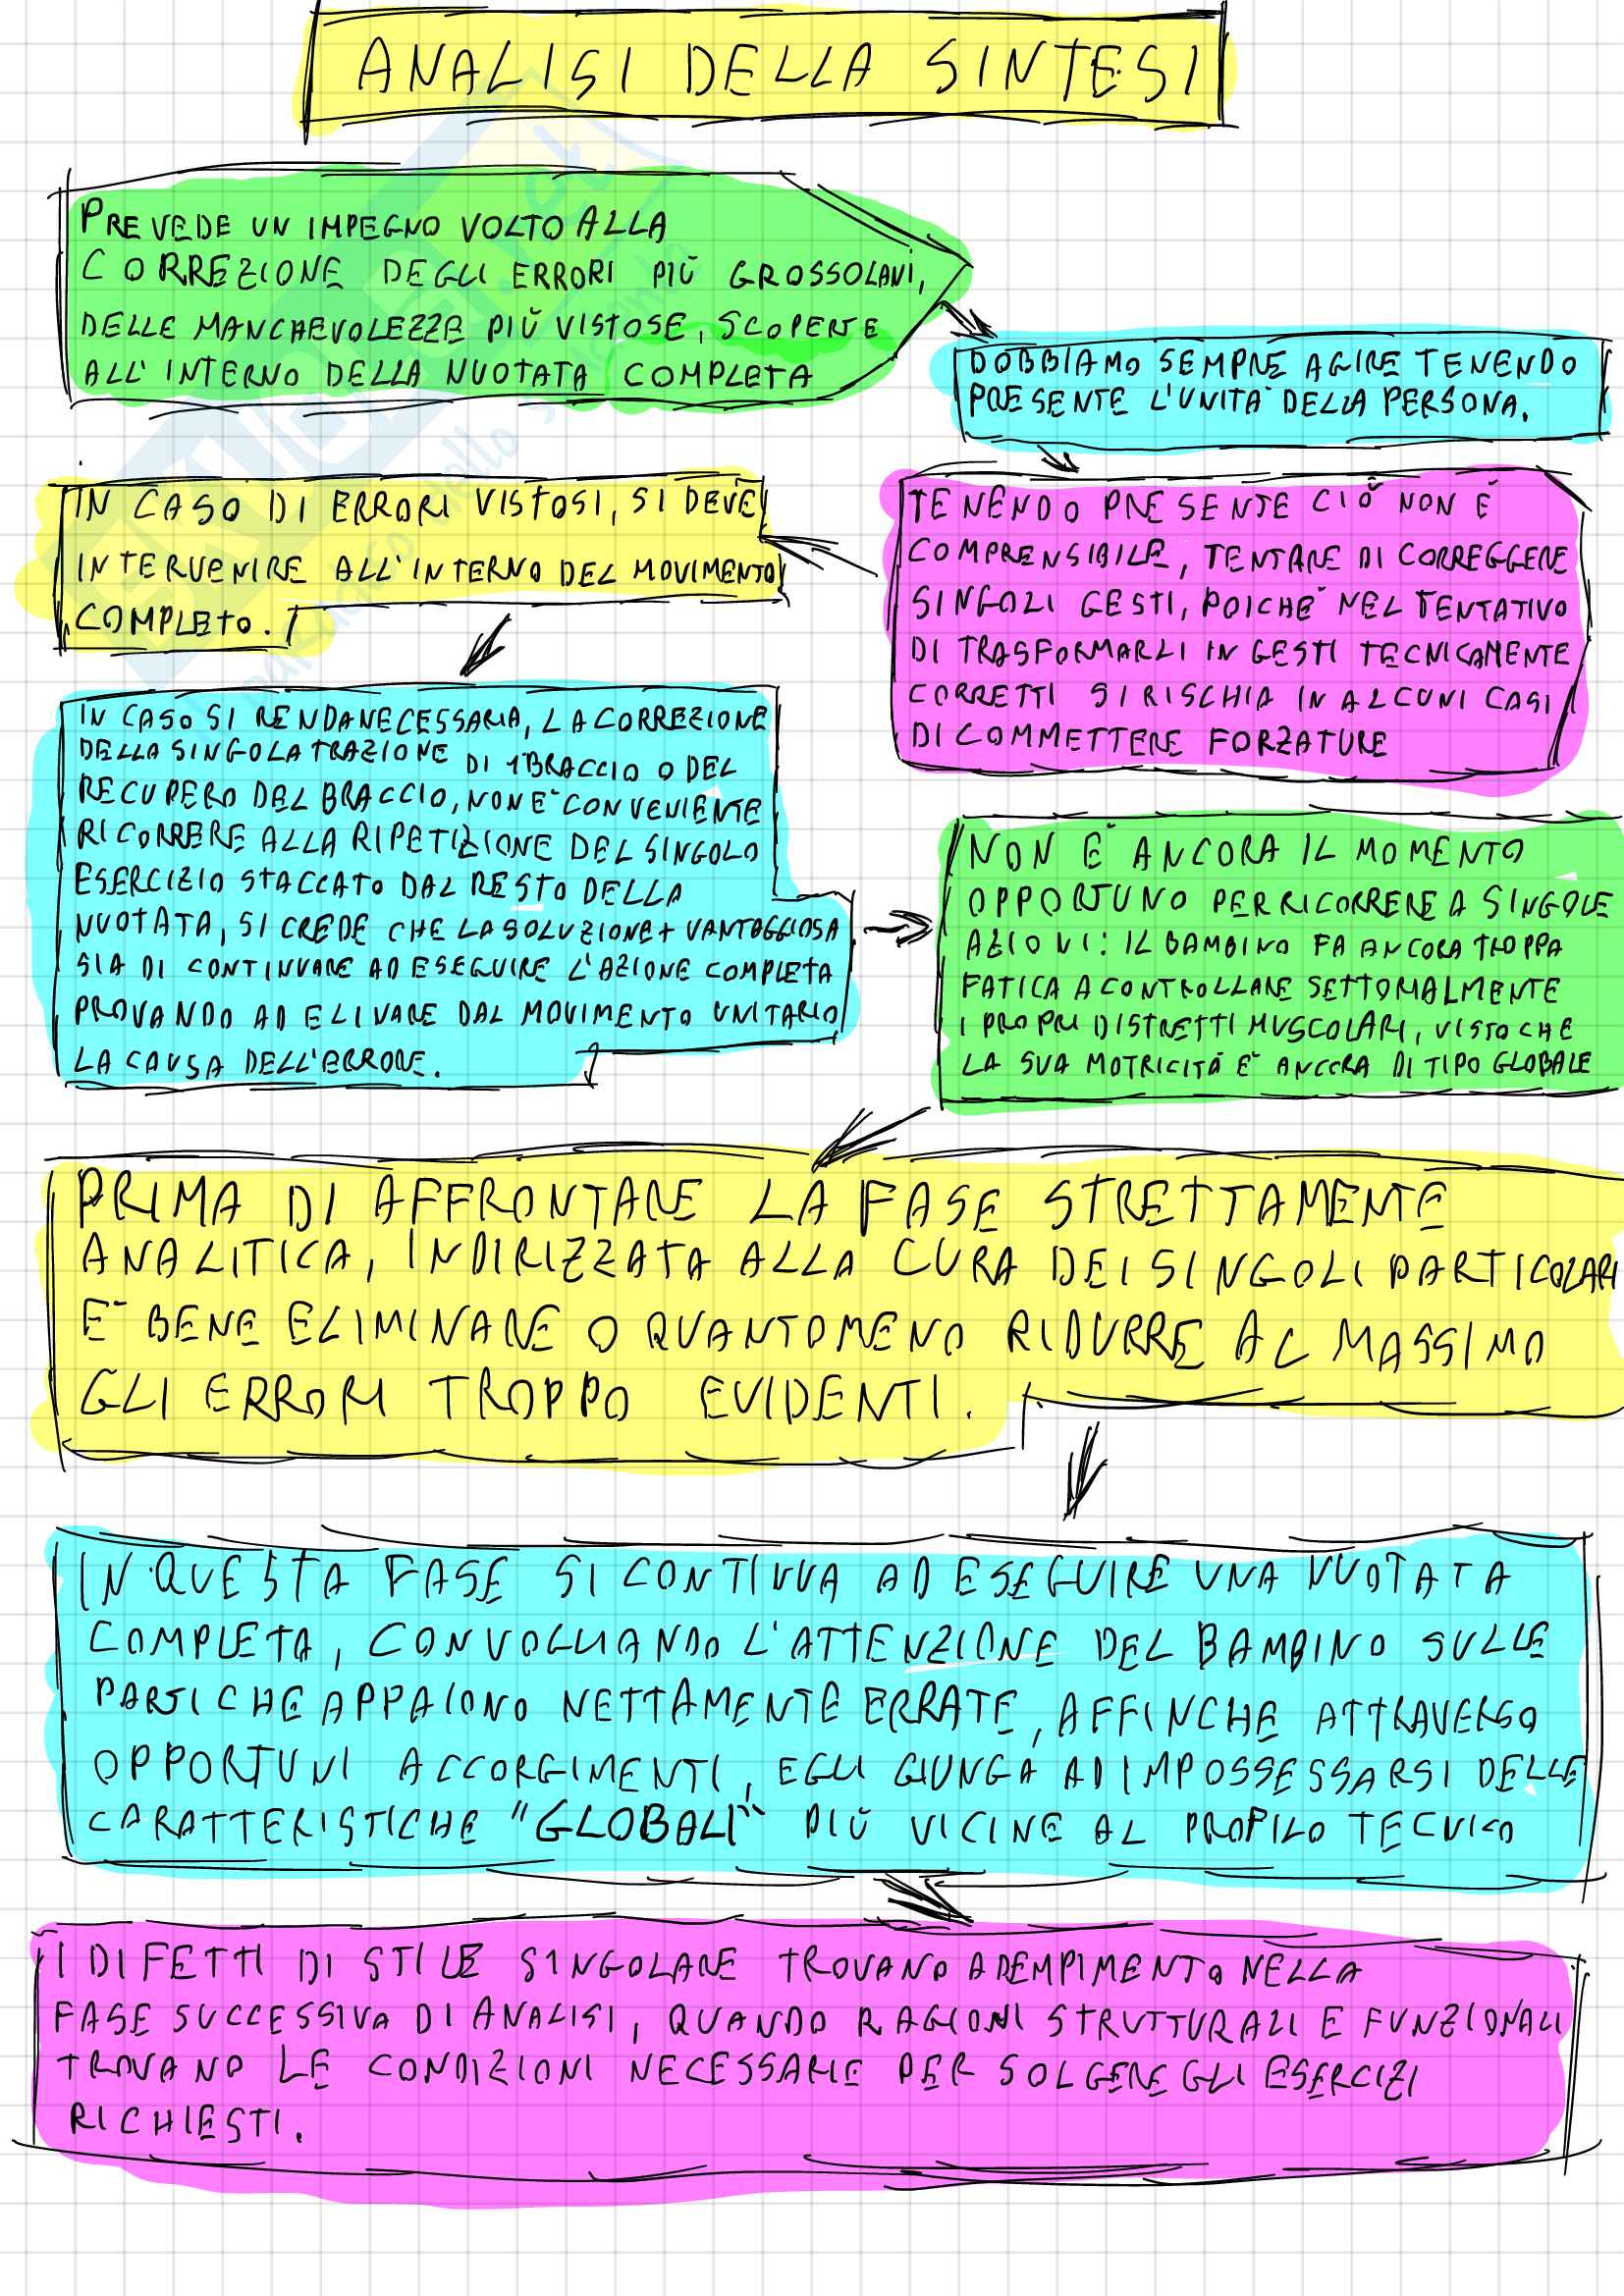 ANALISI DELLA SINTESI
PREVEDE UN IMPEGNO VOLTO ALLA
CORREZIONE DEGLI ERRORI PIÙ GROSSOLANI,
DELLE MANCHEVOLEZZE PIÙ VISTOSE, SCOPERTE
ALL'INTERNO DELLA NUOTATA COMPLETA
DOBBIAMO SEMPRE AGIRE TENENDO
PRESENTE L'UNITÀ DELLA PERSONA.
TENENDO PRESENTE CIÒ NON È
COMPRENSIBILE, TENTARE DI CORREGGERE
SINGOLI GESTI, POICHÈ NEL TENTATIVO
DI TRASFORMARLI IN GESTI TECNICAMENTE
CORRETTI SI RISCHIA IN ALCUNI CASI
DI COMMETTERE FORZATURE
IN CASO DI ERRORI VISTOSI, SI DEVE
INTERVENIRE ALL'INTERNO DEL MOVIMENTO
COMPLETO.
IN CASO SI RENDA NECESSARIA, LA CORREZIONE
DELLA SINGOLA TRAZIONE DI 1 BRACCIO O DEL
RECUPERO DEL BRACCIO, NON È CONVENIENTE
RICORRERE ALLA RIPETIZIONE DEL SINGOLO
ESERCIZIO STACCATO DAL RESTO DELLA
NUOTATA, SI CREDE CHE LA SOLUZIONE + VANTAGGIOSA
SIA DI CONTINUARE AD ESEGUIRE L'AZIONE COMPLETA
PROVANDO AD ELIVARE DAL MOVIMENTO UNITARIO
LA CAUSA DELL'ERRORE.
NON È ANCORA IL MOMENTO
OPPORTUNO PER RICORRERE A SINGOLE
AZIONI: IL BAMBINO FA ANCORA TROPPA
FATICA A CONTROLLARE SETTORIALMENTE
I PROPRI DISTRETTI MUSCOLARI, VISTO CHE
LA SUA MOTRICITÀ È ANCORA DI TIPO GLOBALE
PRIMA DI AFFRONTARE LA FASE STRETTAMENTE
ANALITICA, INDIRIZZATA ALLA CURA DEI SINGOLI PARTICOLARI
È BENE ELIMINARE O QUANTOMENO RIDURRE AL MASSIMO
GLI ERRORI TROPPO EVIDENTI.
IN QUESTA FASE SI CONTINUA AD ESEGUIRE UNA NUOTATA
COMPLETA, CONVOGLIANDO L'ATTENZIONE DEL BAMBINO SULLE
PARTI CHE APPAIONO NETTAMENTE ERRATE, AFFINCHE ATTRAVERSO
OPPORTUNI ACCORGIMENTI, EGLI GIUNGA AD IMPOSSESSARSI DELLE
CARATTERISTICHE "GLOBALI" PIÙ VICINE AL PROFILO TECNICO
I DIFETTI DI STILE SINGOLARE TROVANO ADEMPIMENTO NELLA
FASE SUCCESSIVA DI ANALISI, QUANDO RAGIONI STRUTTURALI E FUNZIONALI
TROVANO LE CONDIZIONI NECESSARIE PER SOLGERE GLI ESERCIZI
RICHIESTI.